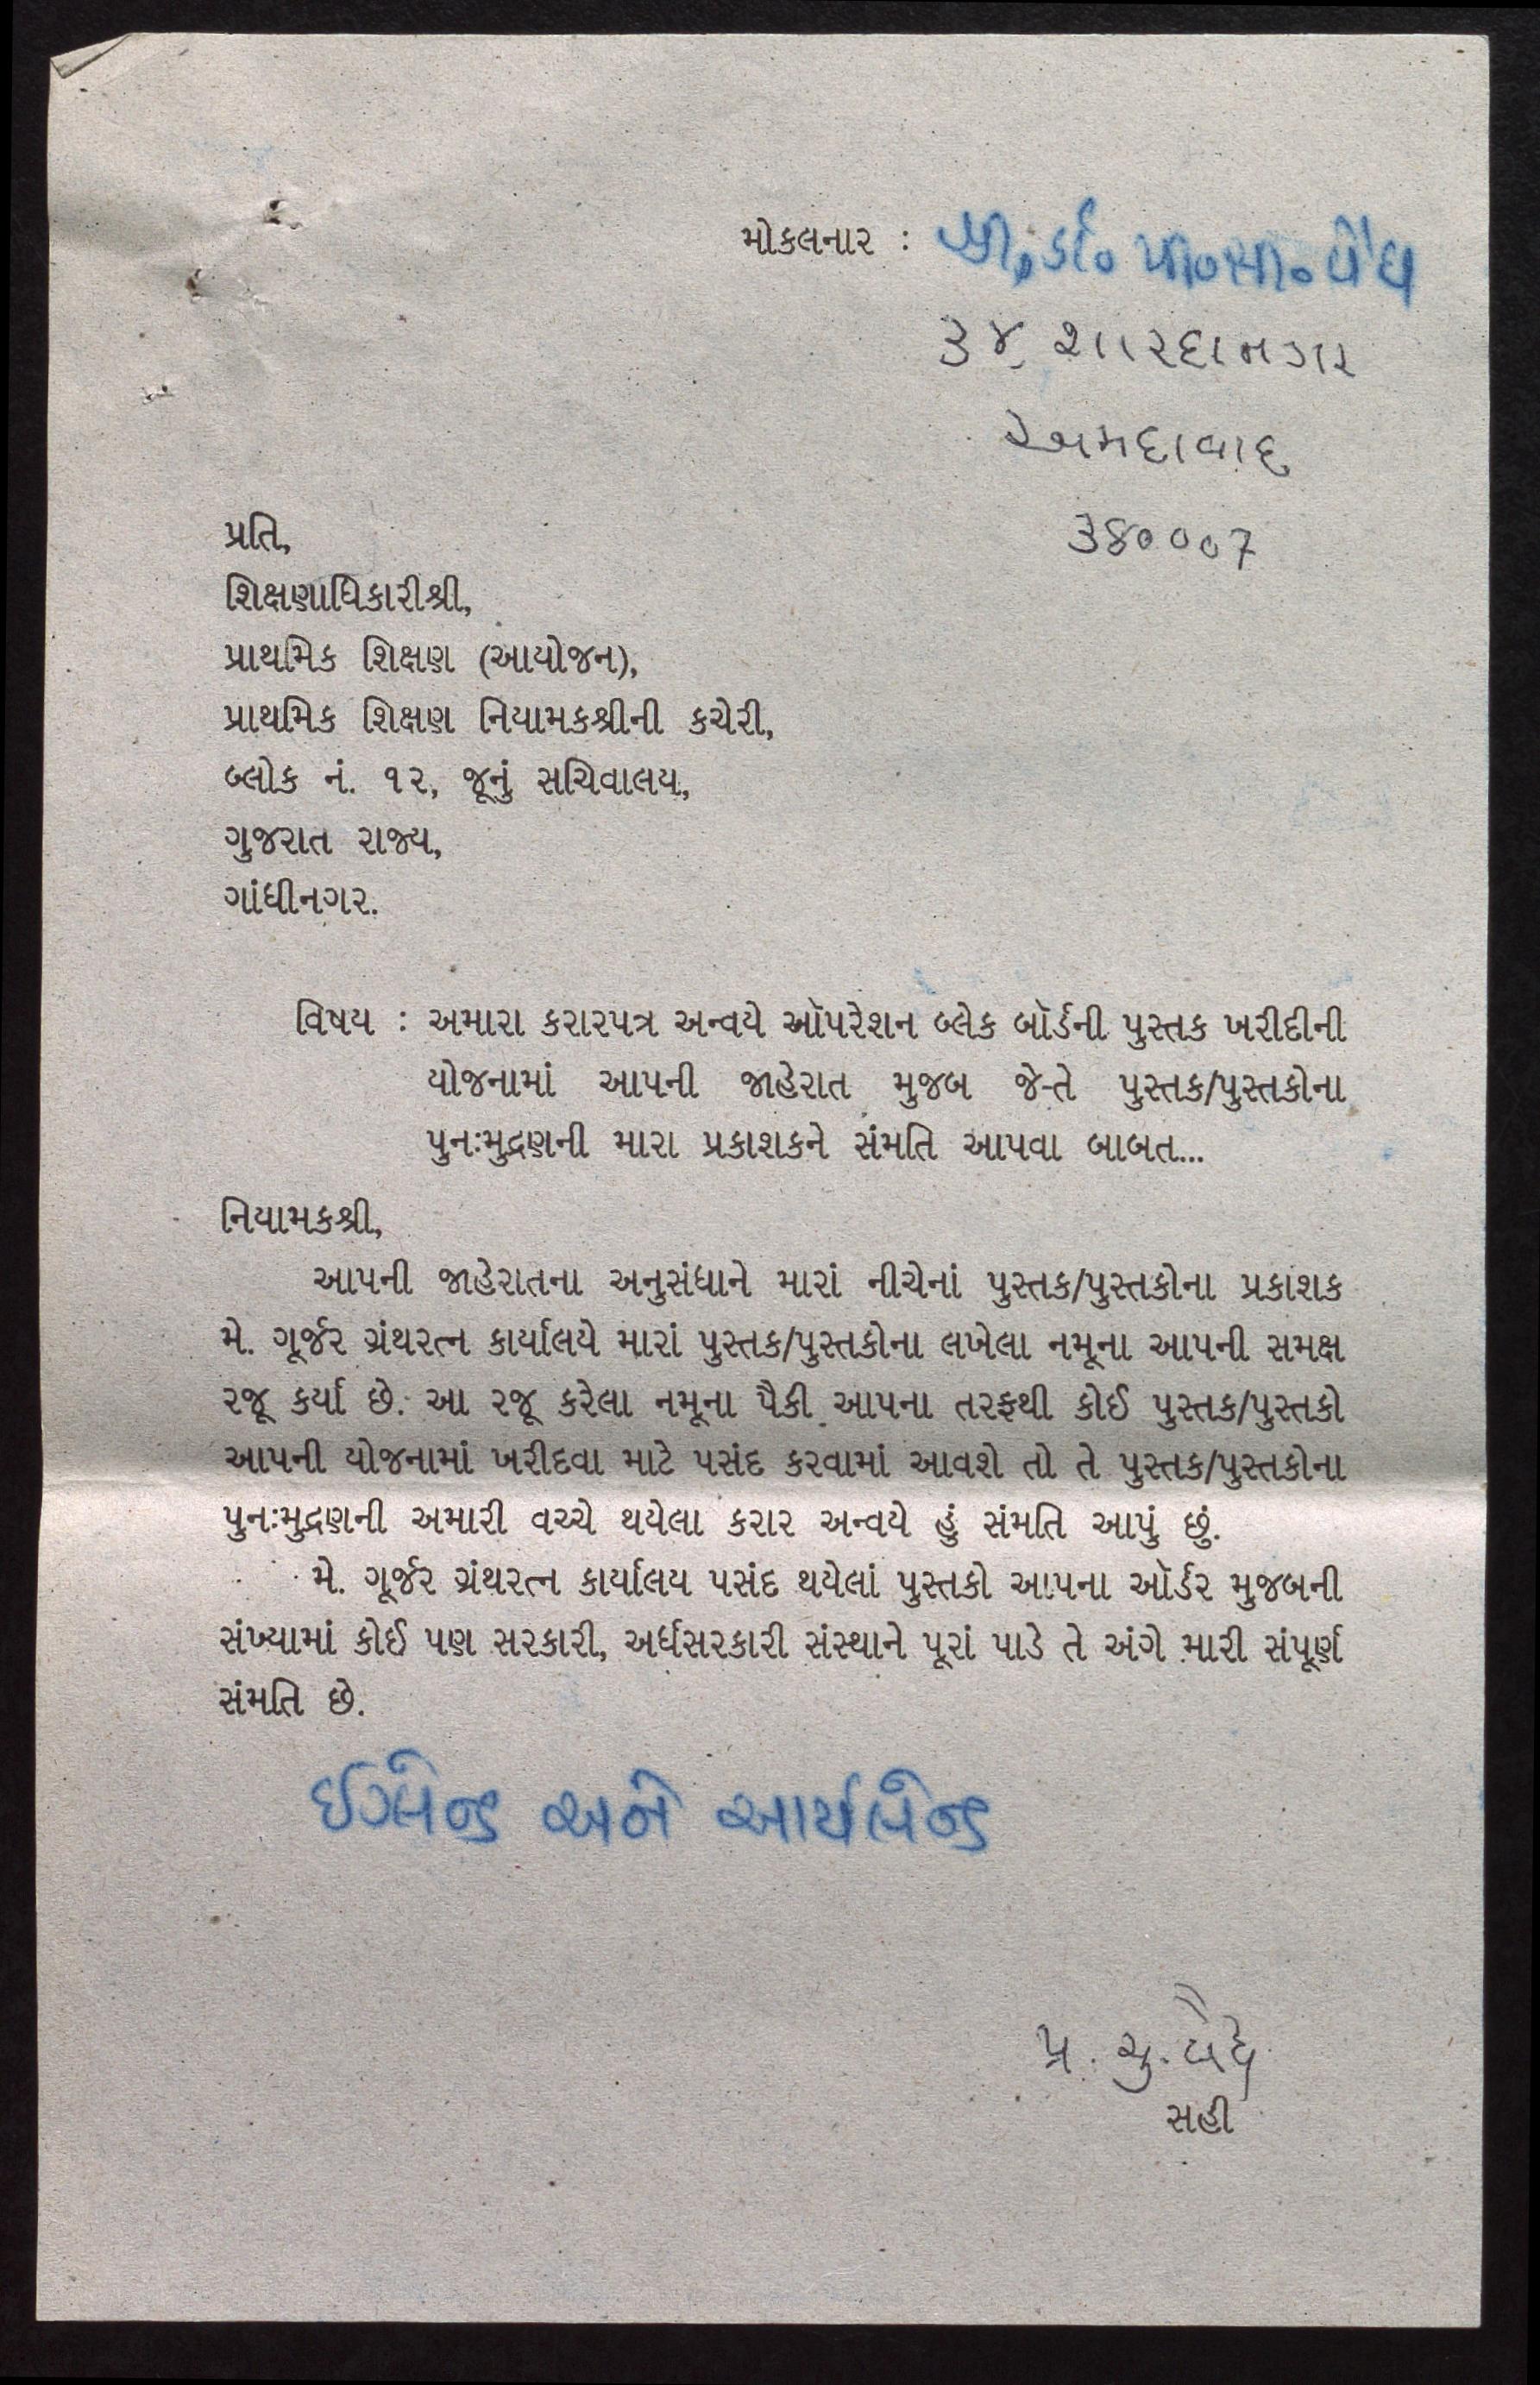 મોકલનાર : શ્રી ડૉ૦ પી૦સી૦ વૈદ્ય
૩૪, શારદાનગર
અમદાવાદ
380007
પ્રતિ,
શિક્ષણાધિકારીશ્રી,
પ્રાથમિક શિક્ષણ (આયોજન),
પ્રાથમિક શિક્ષણ નિયામકશ્રીની કચેરી,
બ્લોક નં. ૧૨, જૂનું સચિવાલય,
ગુજરાત રાજ્ય,
ગાંધીનગર.
વિષય : અમારા કરારપત્ર અન્વયે ઑપરેશન બ્લેક બૉર્ડની પુસ્તક ખરીદીની
યોજનામાં આપની જાહેરાત મુજબ જે-તે પુસ્તક/પુસ્તકોના
પુનઃમુદ્રણની મારા પ્રકાશકને સંમતિ આપવા બાબત...
નિયામકશ્રી,
આપની જાહેરાતના અનુસંધાને મારાં નીચેનાં પુસ્તક/પુસ્તકોના પ્રકાશક
મે. ગૂર્જર ગ્રંથરત્ન કાર્યાલયે મારાં પુસ્તક/પુસ્તકોના લખેલા નમૂના આપની સમક્ષ
રજૂ કર્યા છે. આ રજૂ કરેલા નમૂના પૈકી આપના તરફથી કોઈ પુસ્તક/પુસ્તકો
આપની યોજનામાં ખરીદવા માટે પસંદ કરવામાં આવશે તો તે પુસ્તક/પુસ્તકોના
પુનઃમુદ્રણની અમારી વચ્ચે થયેલા કરાર અન્વયે હું સંમતિ આપું છું.
મે. ગૂર્જર ગ્રંથરત્ન કાર્યાલય પસંદ થયેલાં પુસ્તકો આપના ઑર્ડર મુજબની
સંખ્યામાં કોઈ પણ સરકારી, અર્ધસરકારી સંસ્થાને પૂરાં પાડે તે અંગે મારી સંપૂર્ણ
સંમતિ છે.
ઈગ્લેન્ડ અને આર્યલેન્ડ
પ્ર. ચુ. વૈદ્ય
સહી